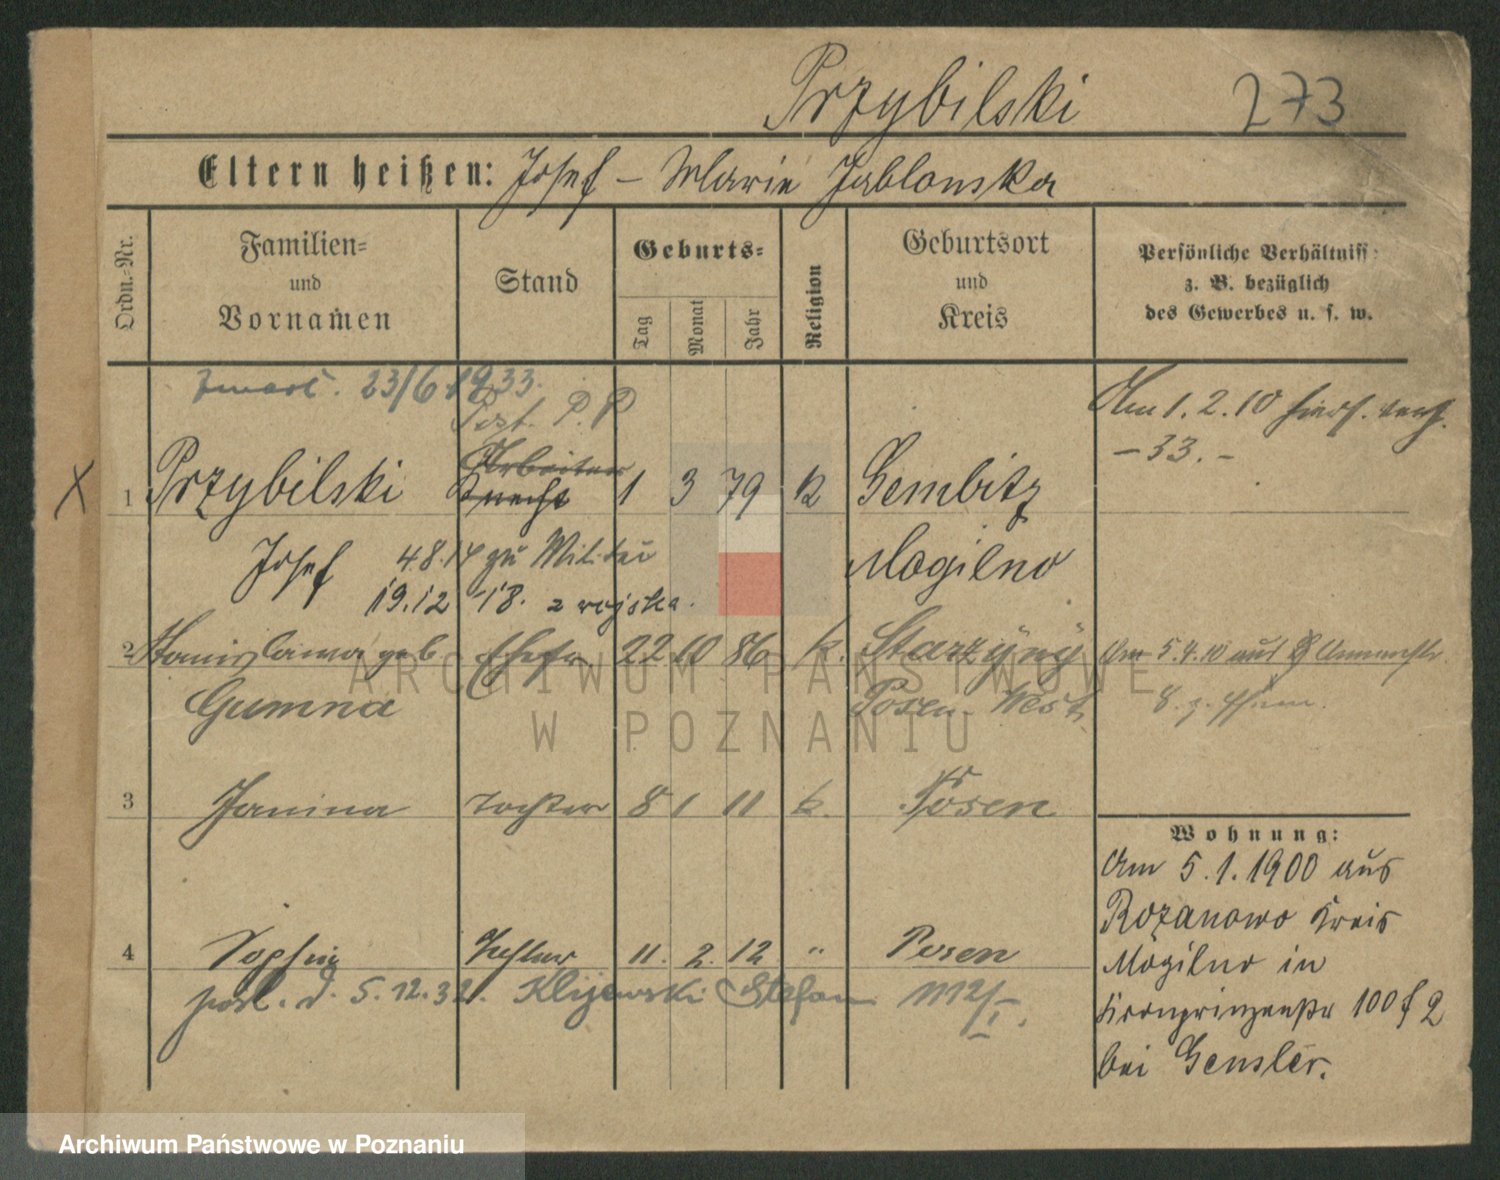 Przybilski 273
Eltern heißen: Josef - Marie Jablonska
Ordn.-Nr.
Familien= und Vornamen
Stand
Geburts=
Tag
Monat
Jahr
Religion
Geburtsort und Kreis
Persönliche Verhältniss
z. B. bezüglich
des Gewerbes u. s. w.
zmarł. 23/6 1933.
P. P
Am 1. 2. 10
-33.-
X
1 Przybilski Arbeiter Knecht 1 3 79 k Gembitz
Josef 4 8. 14 zu Militär Mogilno
19.12 18. z wojska.
2 Stanislawa geb Ehefr 22 10 86 k. Starzyny Am 5.4.10 aus
Gumna Posen-West
3 Janina Tochter 8 1 11 k. Posen
4 Sophie Tochter 11. 2. 12 " Posen
posl. d. 5.12.32. Klijewski Stefan
Wohnung:
Am 5. 1. 1900 aus
Rozanowo Kreis
Mogilno in
Kronprinzenstr 100
bei Gensler.
ARCHIWUM PAŃSTWOWE
W POZNANIU
Archiwum Państwowe w Poznaniu